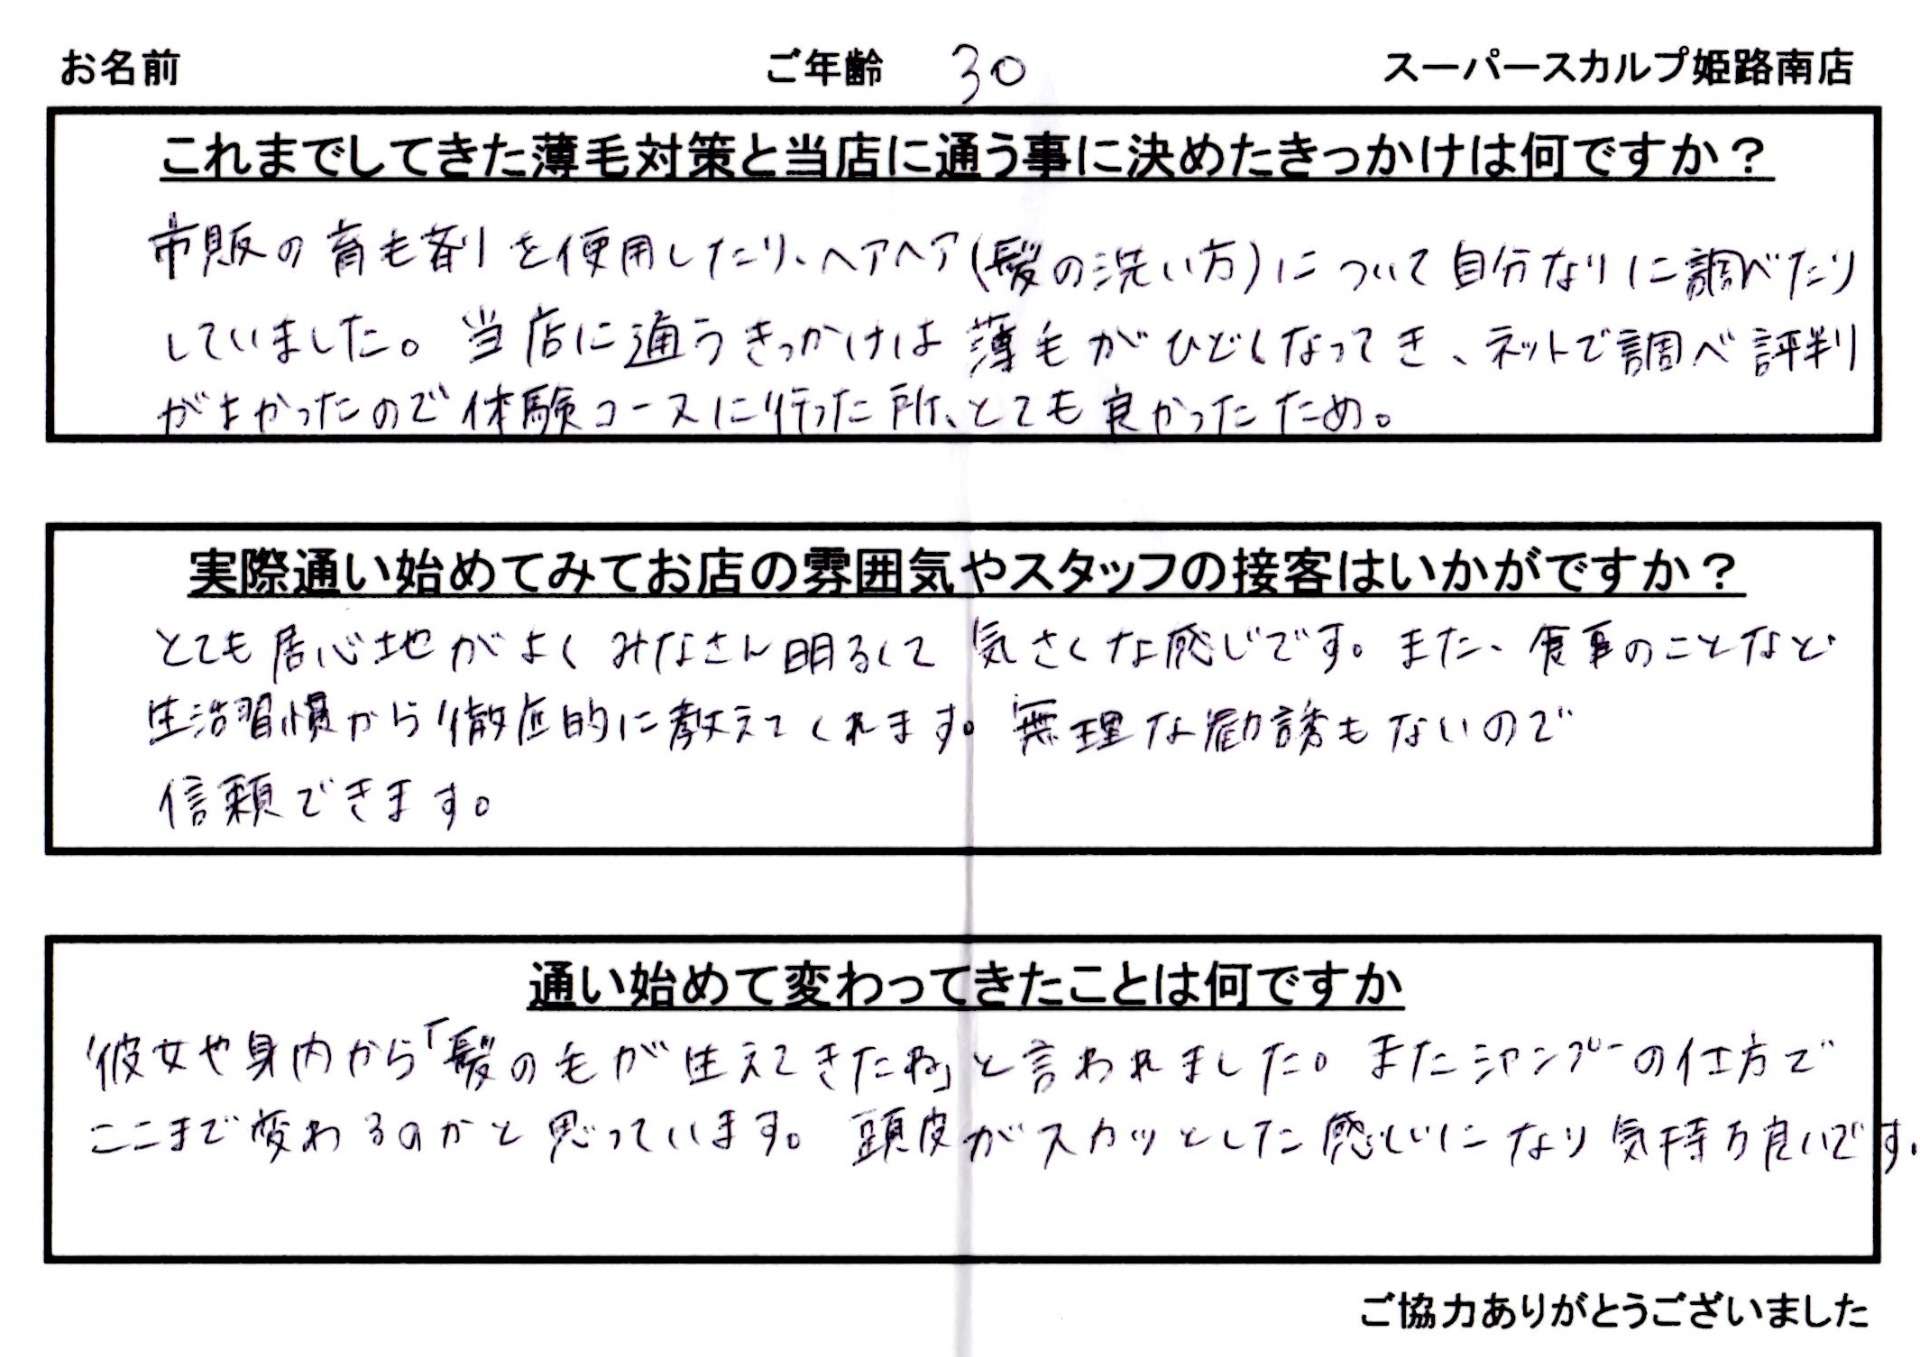 お名前 ご年齢 30 スーパースカルプ姫路南店
これまでしてきた薄毛対策と当店に通う事に決めたきっかけは何ですか？
市販の育毛剤を使用したり、ヘアヘア(髪の洗い方)について自分なりに調べたり
していました。当店に通うきっかけは薄毛がひどくなってき、ネットで調べ評判
がよかったので体験コースに行った所、とても良かったため。
実際通い始めてみてお店の雰囲気やスタッフの接客はいかがですか？
とても居心地がよくみなさん明るくて気さくな感じです。また、食事のことなど
生活習慣から徹底的に教えてくれます。無理な勧誘もないので
信頼できます。
通い始めて変わってきたことは何ですか
彼女や身内から「髪の毛が生えてきたね」と言われました。またシャンプーの仕方で
ここまで変わるのかと思っています。頭皮がスカッとした感じになり気持ち良いです。
ご協力ありがとうございました